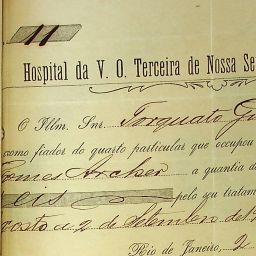 11
Hospital da V. O. Terceira de Nossa Se
O Illm. Snr. Torquato
como fiador do quarto particular que occupou
Gomes Archer a quantia d
eis pelo seu tratam
gosto a 2 de Setembro de 1
Rio de Janeiro, 2